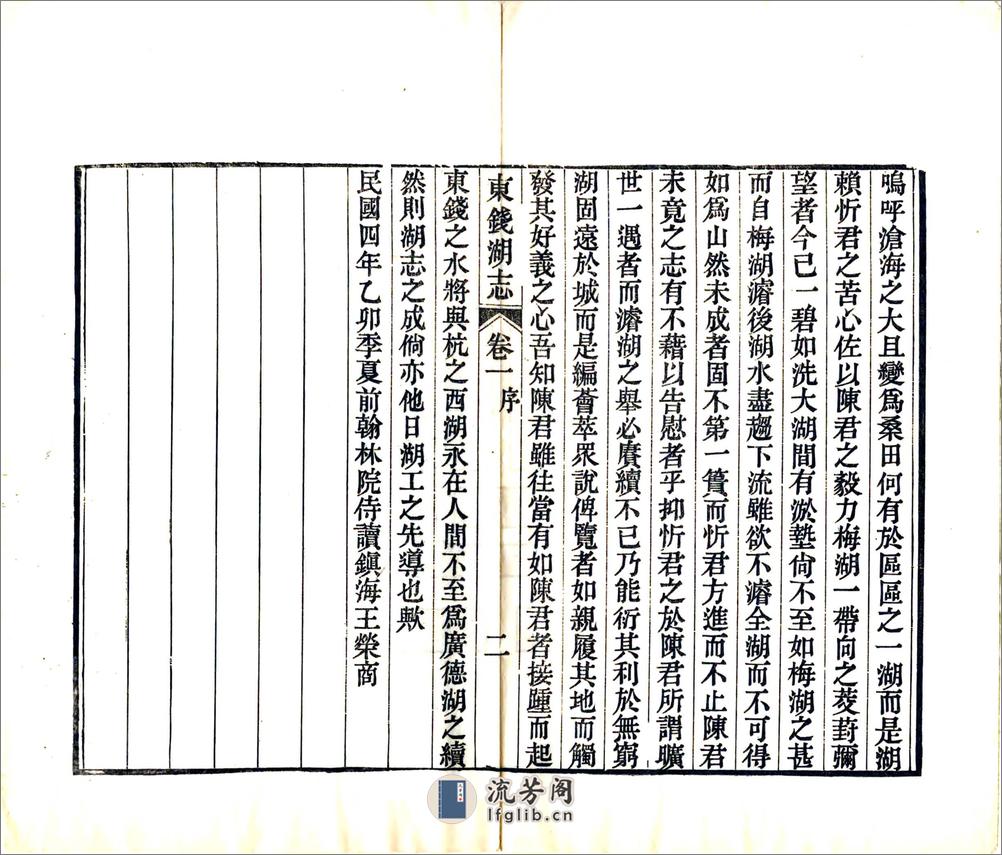 嗚呼滄海之大且變爲桑田何有於區區之一湖而是湖
賴忻君之苦心佐以陳君之毅力梅湖一帶向之茭葑彌
望者今已一碧如洗大湖間有淤墊尙不至如梅湖之甚
而自梅湖濬後湖水盡趨下流雖欲不濬全湖而不可得
如爲山然未成者固不第一簣而忻君方進而不止陳君
未竟之志有不藉以告慰者乎抑忻君之於陳君所謂曠
世一遇者而濬湖之舉必賡續不已乃能衍其利於無窮
湖固遠於城而是編薈萃眾說俾覽者如親履其地而觸
發其好義之心吾知陳君雖往當有如陳君者接踵而起
東錢湖志 卷一 序 二
東錢之水將與杭之西湖永在人間不至爲廣德湖之續
然則湖志之成倘亦他日湖工之先導也歟
民國四年乙卯季夏前翰林院侍讀鎭海王榮商
流芳阁
lfglib.cn